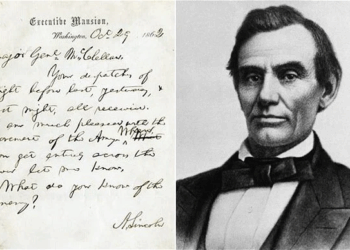 Executive Mansion,
Washington, Oct 29, 1862
Major Genl. McClellan
Your dispatches of
night before last, yesterday, &
last night, all received.
I am much pleased with the
movement of the Army. When
you get entirely across the
river let me know.
What do you know of the
enemy?
A. Lincoln